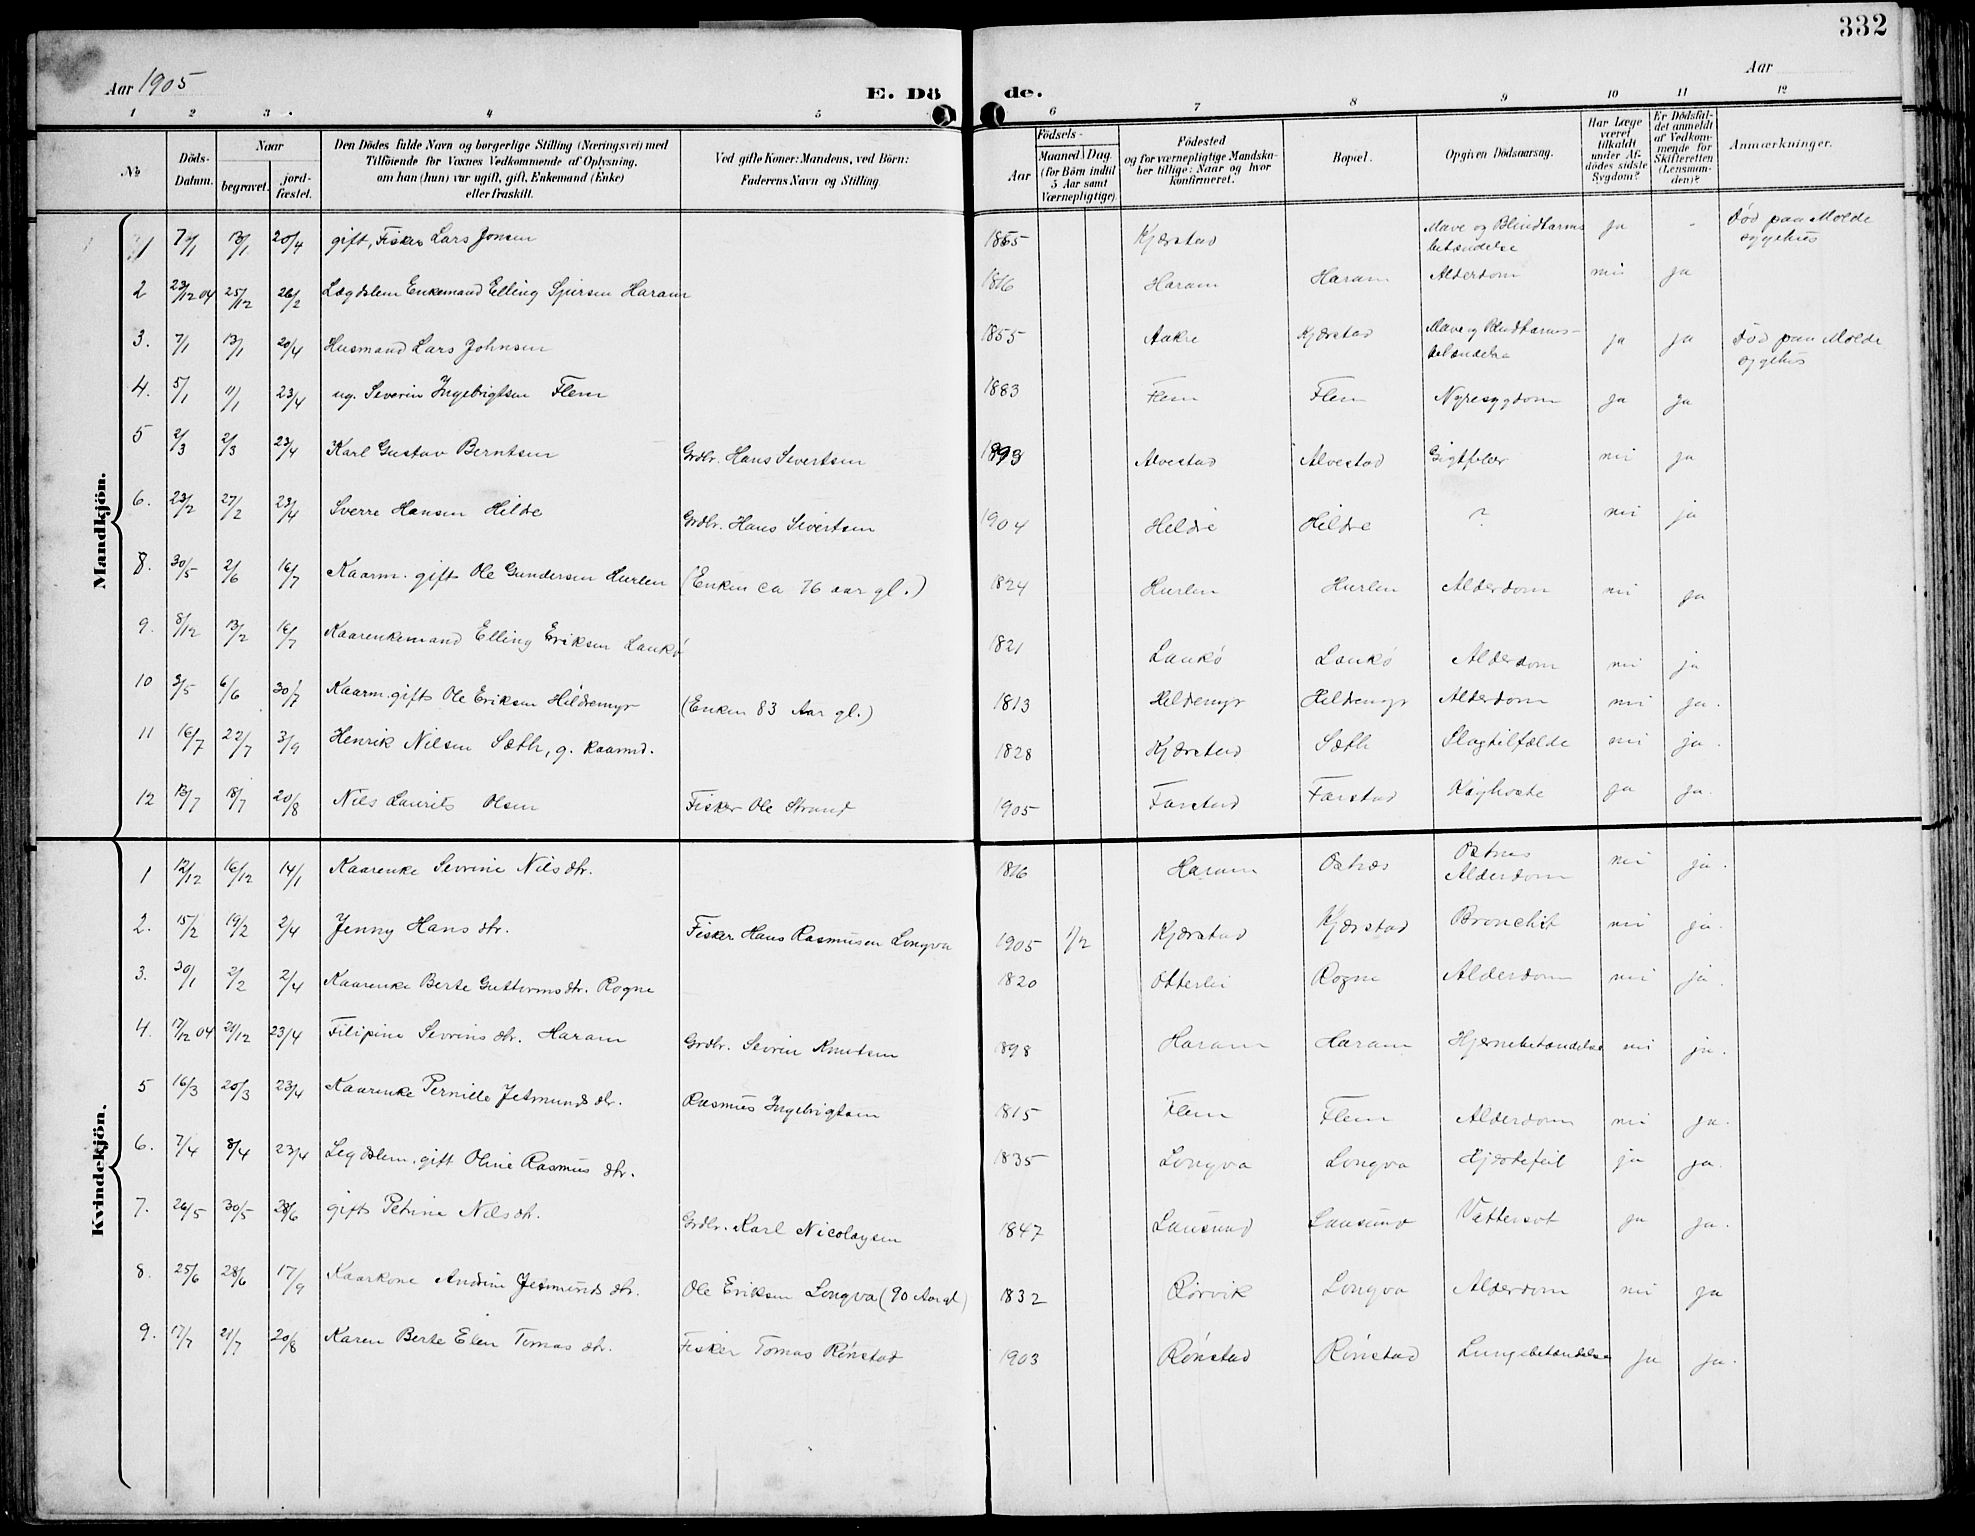 332
Aar 1905
E. Dö de.
Aar
1 2 3 4 5 6 7 8 9 10 11 12
No
Döds-Datum.
Naar
begravet.
jord-fæstet.
Den Dödes fulde Navn og borgerlige Stilling (Næringsvei) med
Tilföiende for Voxnes Vedkommende af Oplysning,
om han (hun) var ugift, gift, Enkemand (Enke)
eller fraskilt.
Ved gifte Koner: Mandens, ved Börn:
Faderens Navn og Stilling.
Födsels-
Aar
Maaned Dag
(for Börn indtil
5 Aar samt
Værnepligtige)
Födested
og for værnepligtige Mandska-
ber tillige: Naar og hvor
konfirmeret.
Bopæl.
Opgiven Dödsaarsag.
Har Læge
været
tilkaldt
under Af-
dödes sidste
Sygdom?
Er Dödsfal-
det anmeldt
af Vedkom-
mende for
Skifteretten
(Lensman-
den)?
Anmærkninger.
Mandkjön.
1 13/1 20/4 gift, Fisker Lars Jonsen 1855 Kjærstad Mave og Blindtarms betændelse ja - Död paa Molde sygehus
2 23/12 04 25/12 26/2 Lægdslem Enkemand Elling Sjursen Haram 1816 Haram Haram Alderdom nei ja
3. 7/1 13/1 20/4 Husmand Lars Johnsen 1855 Aakre Kjærstad Mave og Blindtarms-betændelse ja ja Död paa Molde sygehus
4. 5/1 11/1 23/4 ug. Severin Ingebrigtsen Flem 1883 Flem Flem Nyresygdom ja ja
5 2/3 2/3 23/4 Karl Gustav Berntsen Grdbr. Hans Sivertsen Alvestad Alvestad Gigtfeber nei ja
6. 23/2 27/2 23/4 Sverre Hansen Hildre Grdbr. Hans Sivertsen 1904 Hildre Hildre ? nei ja
8. 30/5 2/6 16/7 Kaarm. gift Ole Gundersen Hurlen (Enken ca 76 aar gl.) 1824 Hurlen Hurlen Alderdom nei ja
9. 8/12 13/2 16/7 Kaarenkemand Elling Eriksen Laukö 1821 Laukö Laukö Alderdom nei ja
10 3/5 6/6 30/7 Kaarm. gift Ole Eriksen Hildremyr (Enken 83 Aar gl.) 1813 Hildremyr Hildremyr Alderdom nei ja.
11 16/7 22/7 3/9 Henrik Nilsen Sæth, g. kaarmd. 1828 Kjærstad Sæth Slagtilfælde nei ja.
12 13/7 18/7 20/8 Nils Laurits Olsen Fisker Ole Strand 1905 Farstad Farstad Kighoste ja ja.
Kvindekjön.
1 12/12 16/12 14/1 Kaarenke Sevrine Nilsdtr. 1816 Haram Ostnes Ostnes Alderdom nei ja.
2. 15/2 19/2 2/4 Jenny Hansdtr. Fisker Hans Rasmusen Longva 1905 1/2 Kjærstad Kjærstad Bronchit nei ja.
3. 30/1 2/2 2/4 Kaarenke Berte Guttormsdtr. Rogne 1820 Otterlei Rogne Alderdom nei ja.
4. 17/12 04 21/12 23/4 Filipine Sevrinsdtr. Haram Grdbr. Sevrin Knutsen 1898 Haram Haram Hjernebetændelse nei ja.
5 16/3 20/3 23/4 Kaarenke Pernille Jetmundsdtr. Rasmus Ingebrigtsen 1815 Flem Flem Alderdom nei ja.
6. 7/4 8/4 23/4 Legdslem. gift Oline Rasmusdtr. 1835 Longva Longva Hjertefeil ja ja.
7. 26/5 30/5 28/6 gift Petrine Nilsdtr. Grdbr. Karl Nicolaysen 1847 Lausund Lausund Vattersot ja ja.
8. 25/6 28/6 17/9 Kaarkone Andrine Jetmundsdtr. Ole Eriksen Longva (90 Aar gl) 1832 Rörvik Longva Alderdom nei ja
9. 17/7 21/7 20/8 Karen Berte Elen Tomasdtr. Fisker Tomas Rönstad 1903 Rönstad Rönstad Lungebetændelse ja ja.